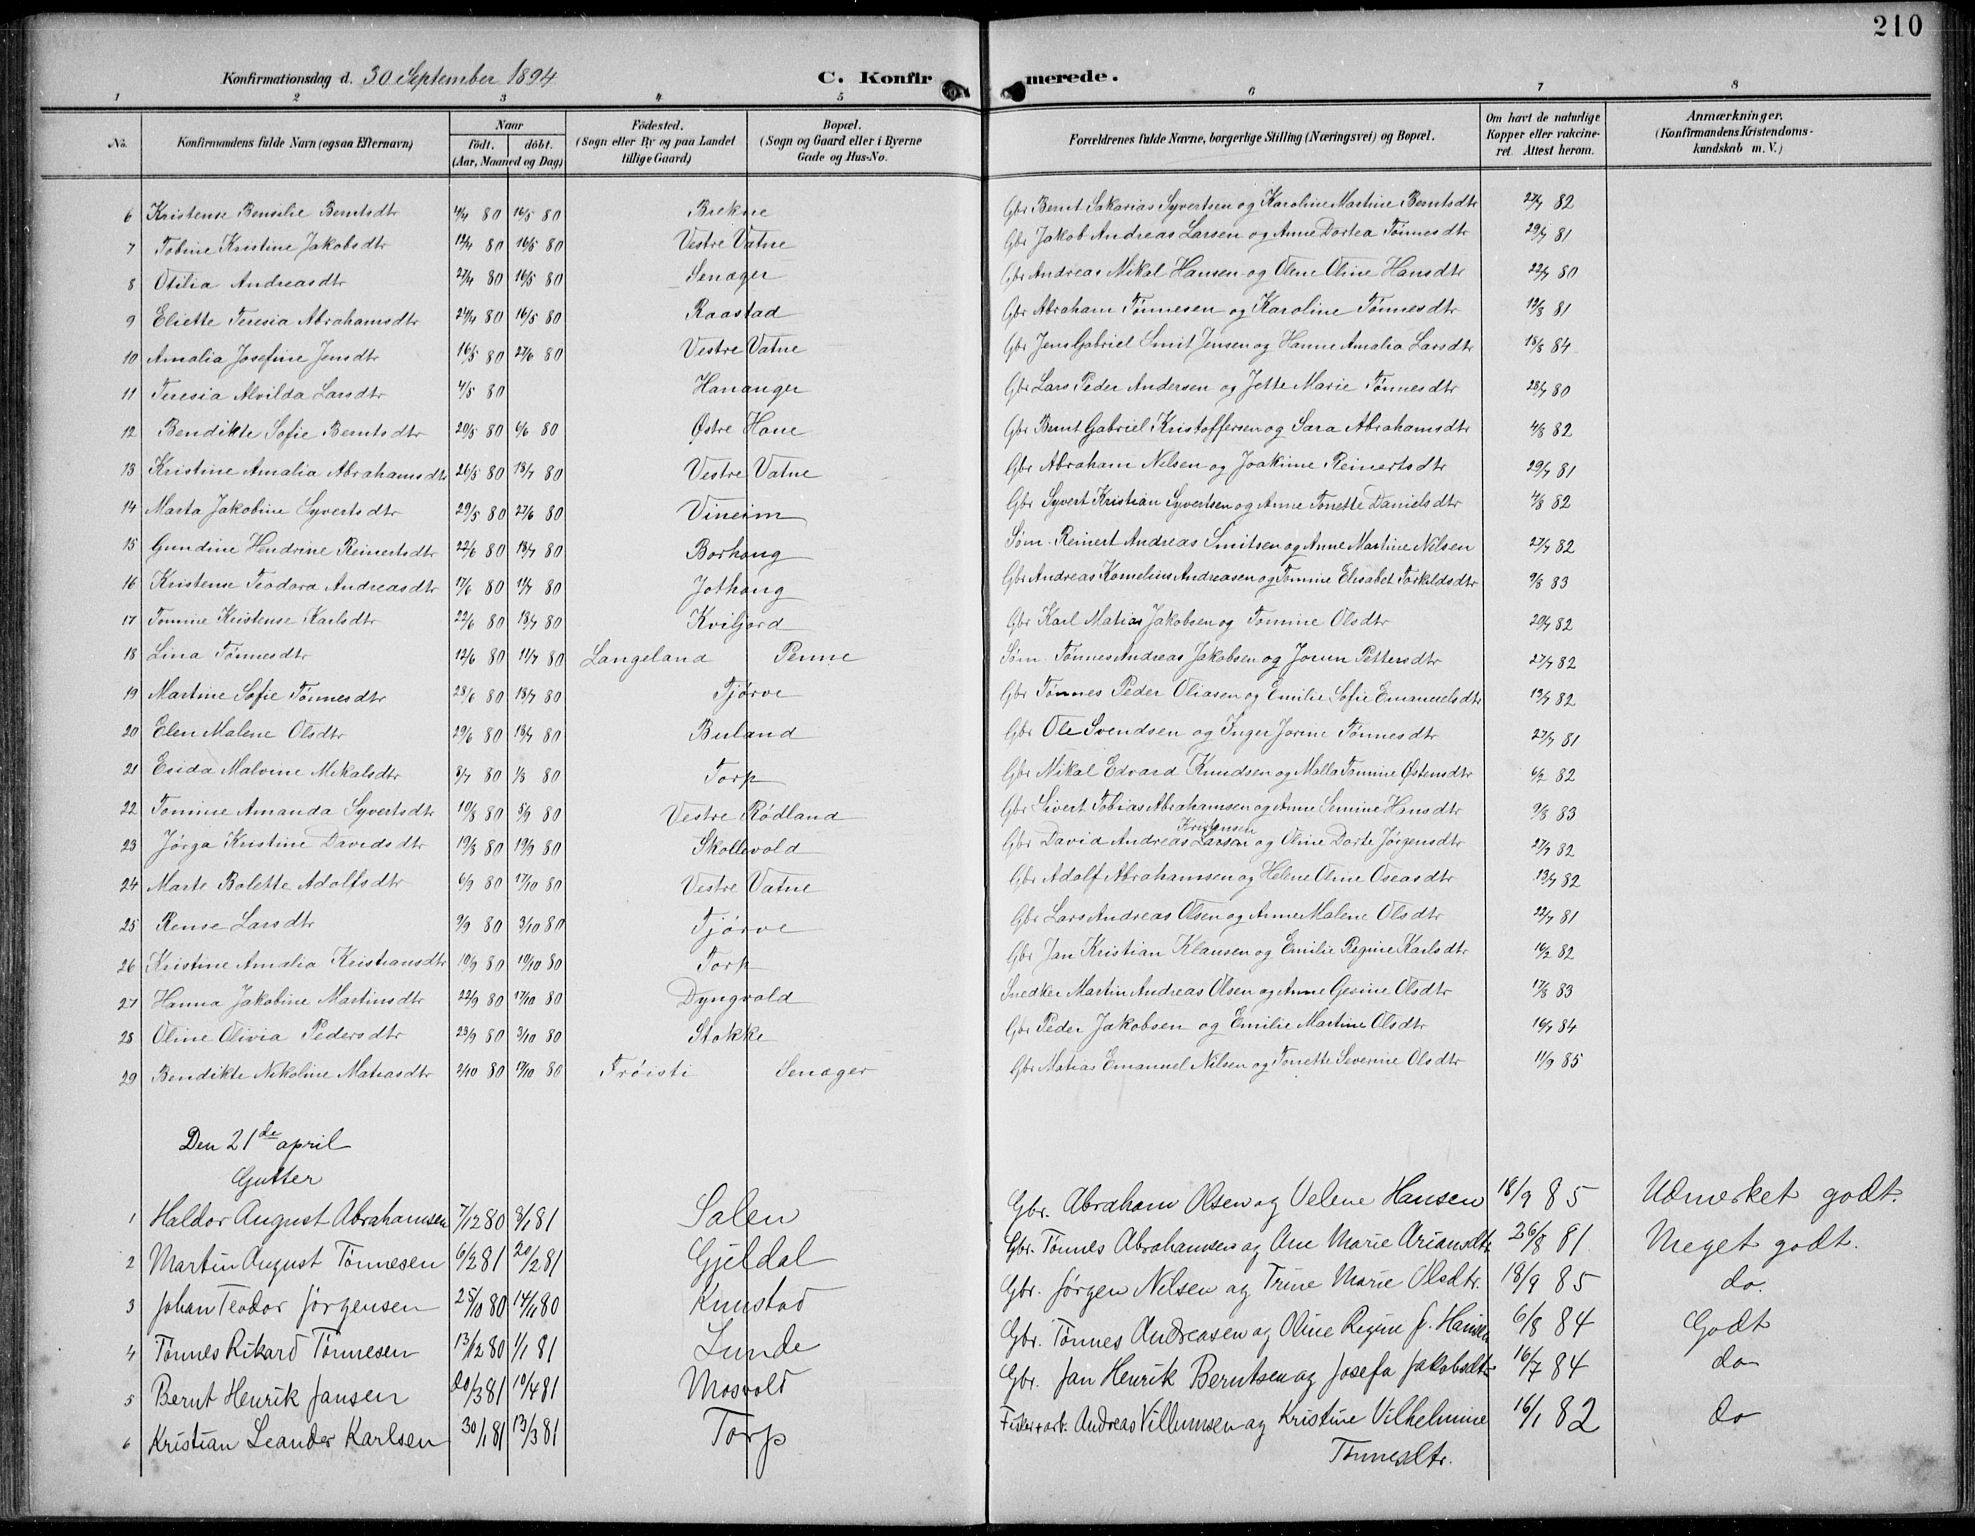 210
Konfirmationsdag d. 30 September 1894 C. Konfir merede.
1 2 3 4 5 6 7 8
No. Konfirmandens fulde Navn (ogsaa Efternavn) Naar født. døbt. (Aar, Maaned og Dag) Fødested. (Sogn eller By og paa Landet tillige Gaard) Bopæl. (Sogn og Gaard eller i Byerne Gade og Hus-No. Forældrenes fulde Navne, borgerlige Stilling (Næringsvei) og Bopæl. Om havt de naturlige Kopper eller vakcineret. Attest herom. Anmærkninger. (Konfirmandens Kristendomskundskab m. V.)
6 Kristense Bensilie Berntsdtr 4/4 80 16/5 80 Brekne Gbr Bernt Sakarias Syvertsen og Karoline Martine Berntsdtr 27/7 82
7 Tobine Kristine Jakobsdtr 12/4 80 16/5 80 Vestre Vatne Gbr Jakob Andreas Larsen og Anne Dortea Tønnesdtr 29/7 81
8 Otilia Andreasdtr 27/4 80 16/5 80 Senager Gbr Andreas Mikal Hansen og Olene Oline Hansdtr 22/7 80
9 Eliette Teresia Abrahamsdtr 24/4 80 16/5 80 Raastad Gbr Abraham Tønnesen og Karoline Tønnesdtr 19/8 81
10 Amalia Josefine Jensdtr 16/5 80 27/6 80 Vestre Vatne Gbr Jens Gabriel Smit Jensen og Hanne Amalia Larsdtr 18/8 84
11 Teresia Alvilda Larsdtr 4/5 80 Hananger Gbr Lars Peder Andersen og Jette Marie Tønnesdtr 28/7 80
12 Bendikte Sofie Berntsdtr 20/5 80 6/6 80 Østre Hane Gbr Bernt Gabriel Kristoffersen og Sara Abrahamsdtr 4/8 82
13 Kristine Amalia Abrahamsdtr 26/5 80 18/7 80 Vestre Vatne Gbr Abraham Nilsen og Joakime Reinertsdtr 29/7 81
14 Marta Jakobine Syvertsdtr 29/5 80 27/6 80 Vineim Gbr Syvert Kristian Syvertsen og Anne Tonette Danielsdtr 4/8 82
15 Gundine Hendrine Reinertsdtr 22/6 80 18/7 80 Borhaug Søm. Reinert Andreas Smitsen og Anne Martine Nilsen 27/7 82
16 Kristense Teodora Andreasdtr 17/6 80 11/7 80 Jothaug Gbr Andreas Kornelius Andreasen og Tomine Elisabet Torkildsdtr 9/8 83
17 Tomine Kristense Karlsdtr 22/6 80 18/7 80 Kviljord Gbr Karl Matias Jakobsen og Tomine Olsdtr 20/7 82
18 Lina Tønnesdtr 12/6 80 11/7 80 Langeland Penne Søm. Tønnes Andreas Jakobsen og Jorun Pettersdtr 27/7 82
19 Martine Sofie Tønnesdtr 28/6 80 18/7 80 Tjørve Gbr Tønnes Peder Oliasen og Emilie Sofie Emanuelsdtr 19/7 82
20 Elen Malene Olsdtr 29/6 80 18/7 80 Buland Gbr Ole Svendsen og Inger Jorine Tønnesdtr 27/7 81
21 Esida Malvine Mikalsdtr 8/7 80 1/8 80 Torp Gbr Mikal Edvard Knudsen og Malla Tomine Østensdtr 6/2 82
22 Tomine Amanda Syvertsdtr 10/8 80 5/9 80 Vestre Rødland Gbr Sivert Tobias Abrahamsen og Anne Semine Hansdtr 9/8 83
23 Jørga Kristine Davidsdtr 19/8 80 19/9 80 Skollevold Gbr David Andreas Larsen Kristensen og Oline Dorte Jørgensdtr 27/7 82
24 Marte Bolette Adolfsdtr 6/9 80 17/10 80 Vestre Vatne Gbr Adolf Abrahamsen og Helene Oline Oseasdtr 13/7 82
25 Rense Larsdtr 9/9 80 3/10 80 Tjørve Gbr Lars Andreas Olsen og Anne Malene Olsdtr 22/7 81
26 Kristine Amalia Kristiansdtr 10/9 80 10/10 80 Torp Gbr Jan Kristian Klausen og Emilie Regine Karlsdtr 16/2 82
27 Hanna Jakobine Martinsdtr 22/9 80 17/10 80 Dyngvold Snedker Martin Andreas Olsen og Anne Gesine Olsdtr 17/8 83
28 Oline Olivia Pedersdtr 23/9 80 3/10 80 Stokke Gbr Peder Jakobsen og Emilie Martine Olsdtr 16/7 84
29 Bendikte Nikoline Matiasdtr 2/10 80 17/10 80 Frøisti Senager Gbr Matias Emanuel Nilsen og Tonette Severine Olsdtr 11/9 85
Den 21de april
Gutter
1 Haldor August Abrahamsen 7/12 80 3/1 81 Salen Gbr. Abraham Olsen og Velene Hansen 18/9 85 Udmerket godt.
2 Martin August Tønnesen 6/2 81 20/2 81 Gjeldal Gbr. Tønnes Abrahamsen og Ane Marie Ariansdtr 26/8 81 Meget godt.
3 Johan Teodor Jørgensen 25/10 80 14/11 80 Knustad Gbr. Jørgen Nilsen og Trine Marie Olsdtr. 18/9 85 do.
4 Tønnes Rikard Tønnesen 13/12 80 1/1 81 Lunde Gbr. Tønnes Andreasen og Oline Regine J. Hansen 6/8 84 Godt
5 Bernt Henrik Jansen 20/3 81 10/4 81 Mosvold Gbr. Jan Henrik Berntsen og Josefa Jakobsdtr 16/7 84 do
6 Kristian Leander Karlsen 30/1 81 13/3 81 Torp Andreas Villumsen og Kristine Vilhelmine 16/1 82 do
Tønnesdtr.